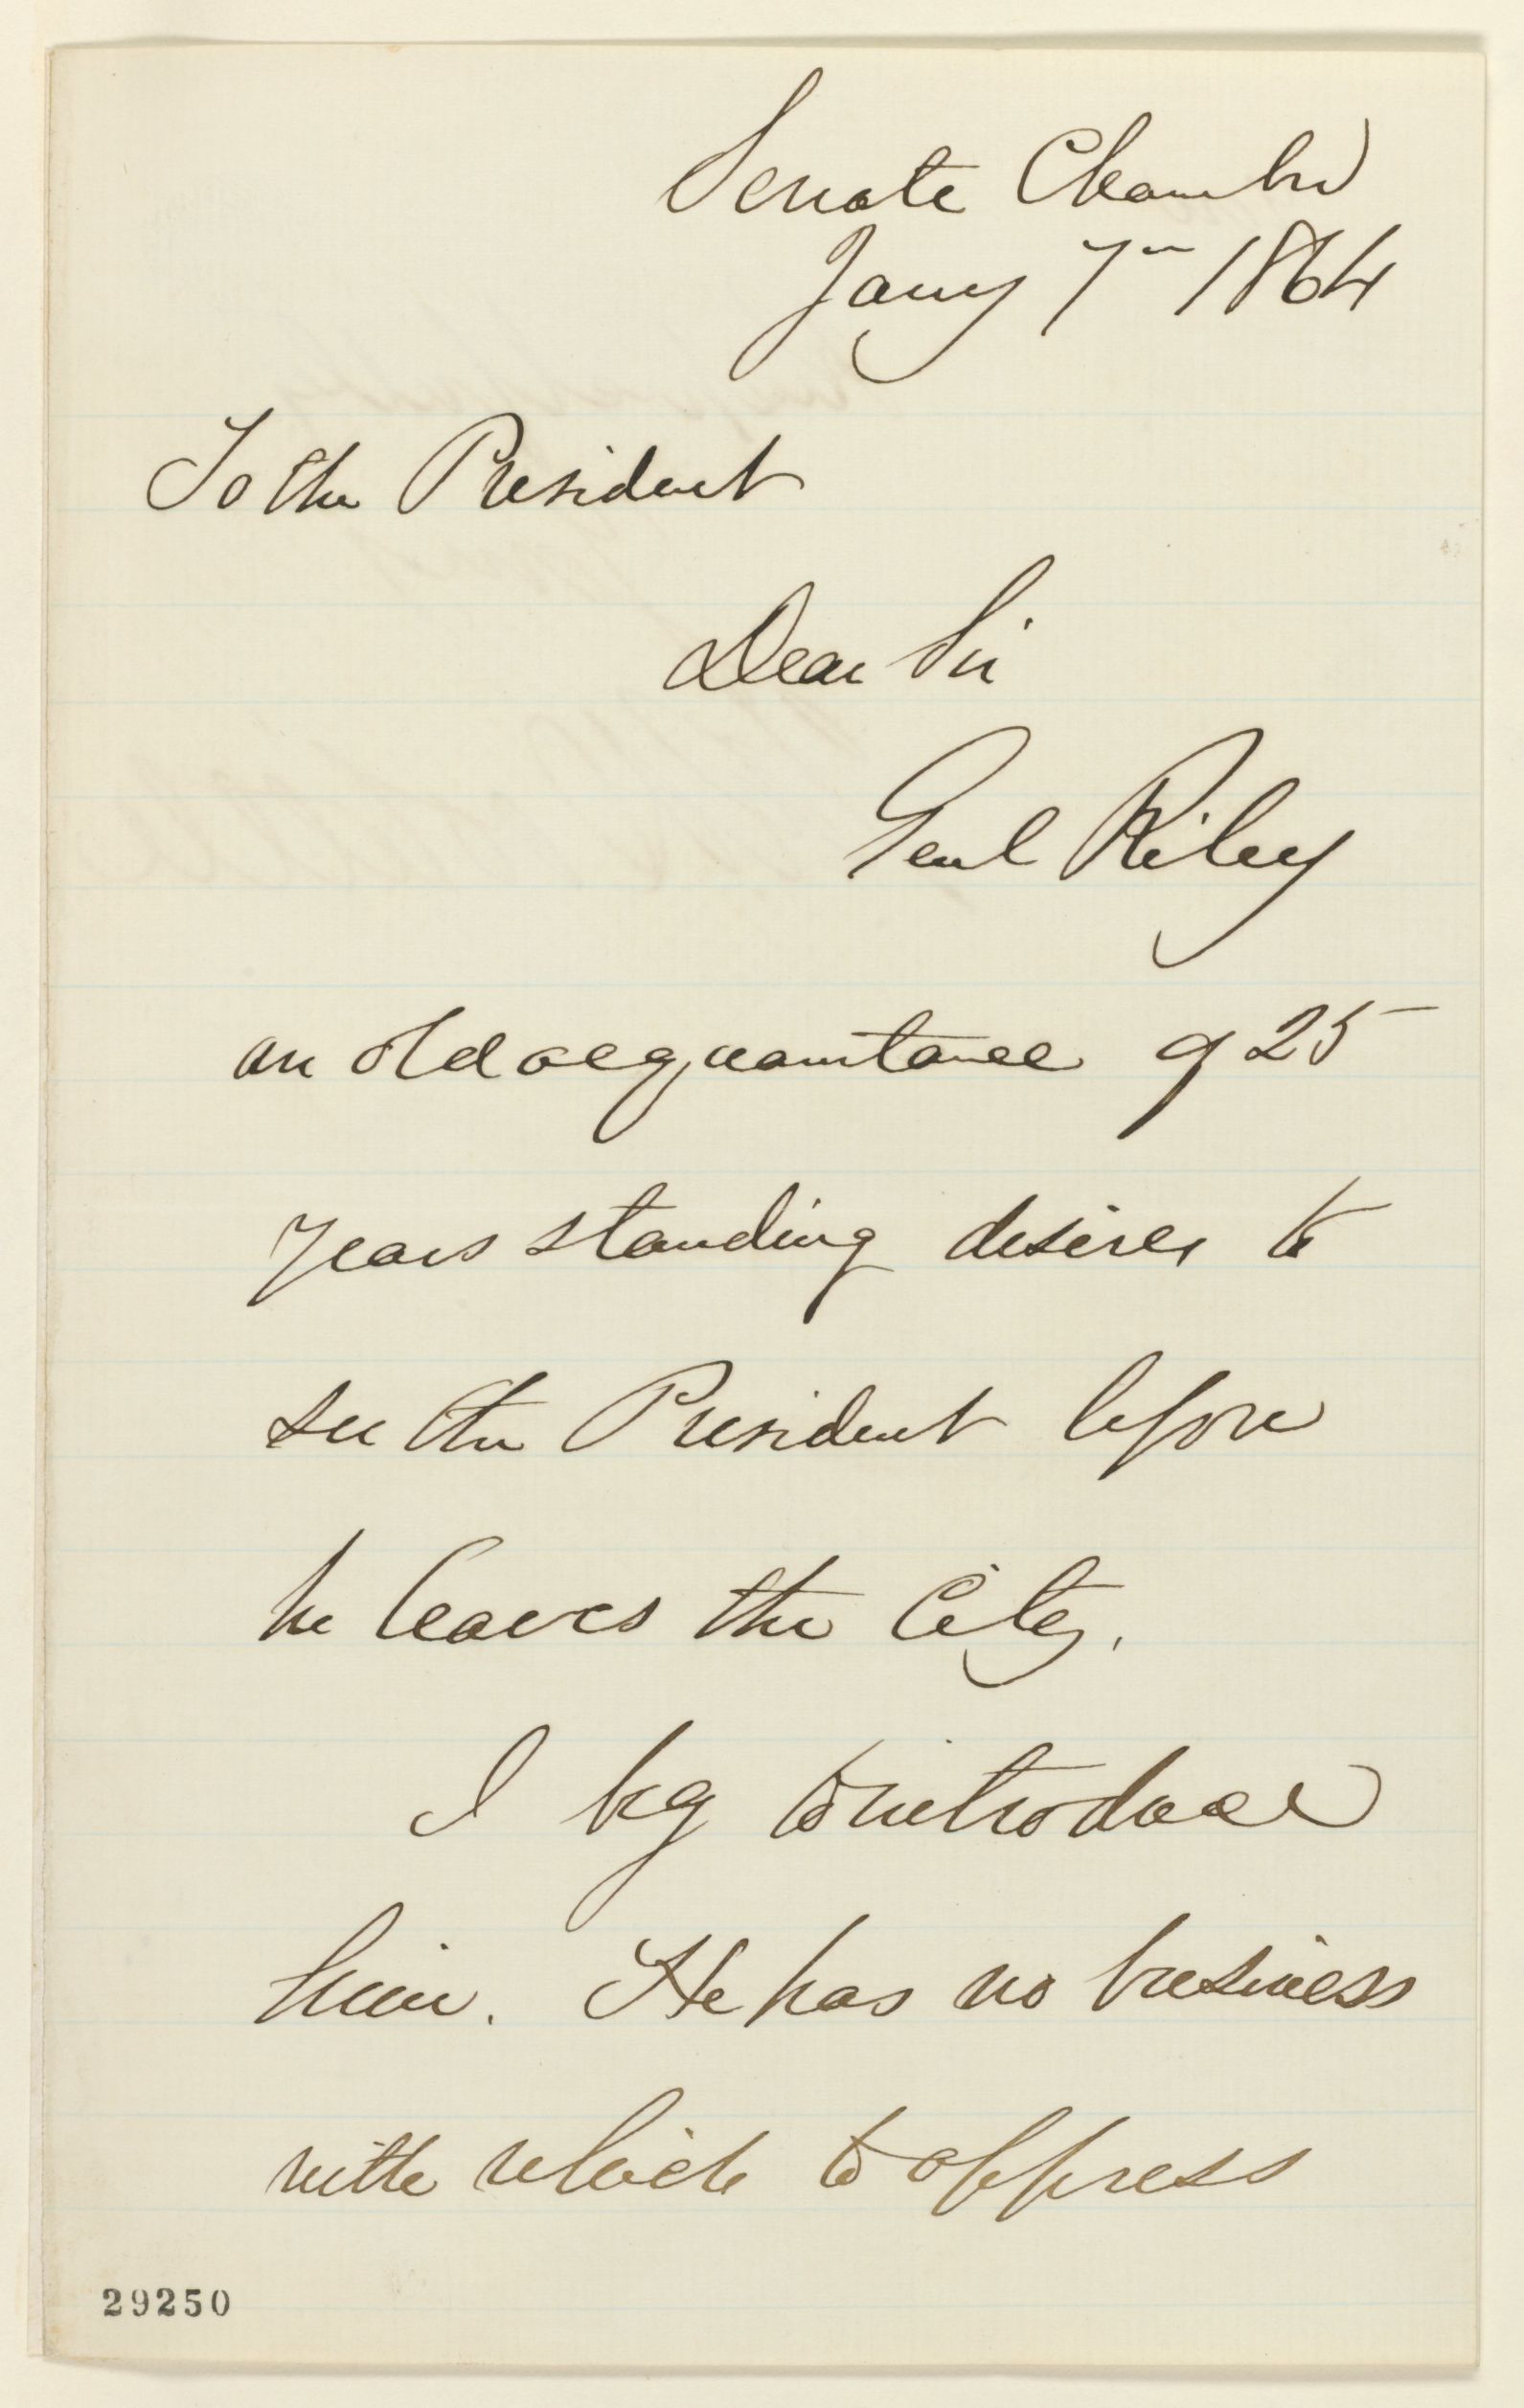 Senate Chamber
Jany 7th 1864
To the President
Dear Sir
Genl Riley
an old acquaintance of 25
years standing desires to
see the President before
he leaves the City.
I beg to introduce
him. He has no business
with which to oppress
29250